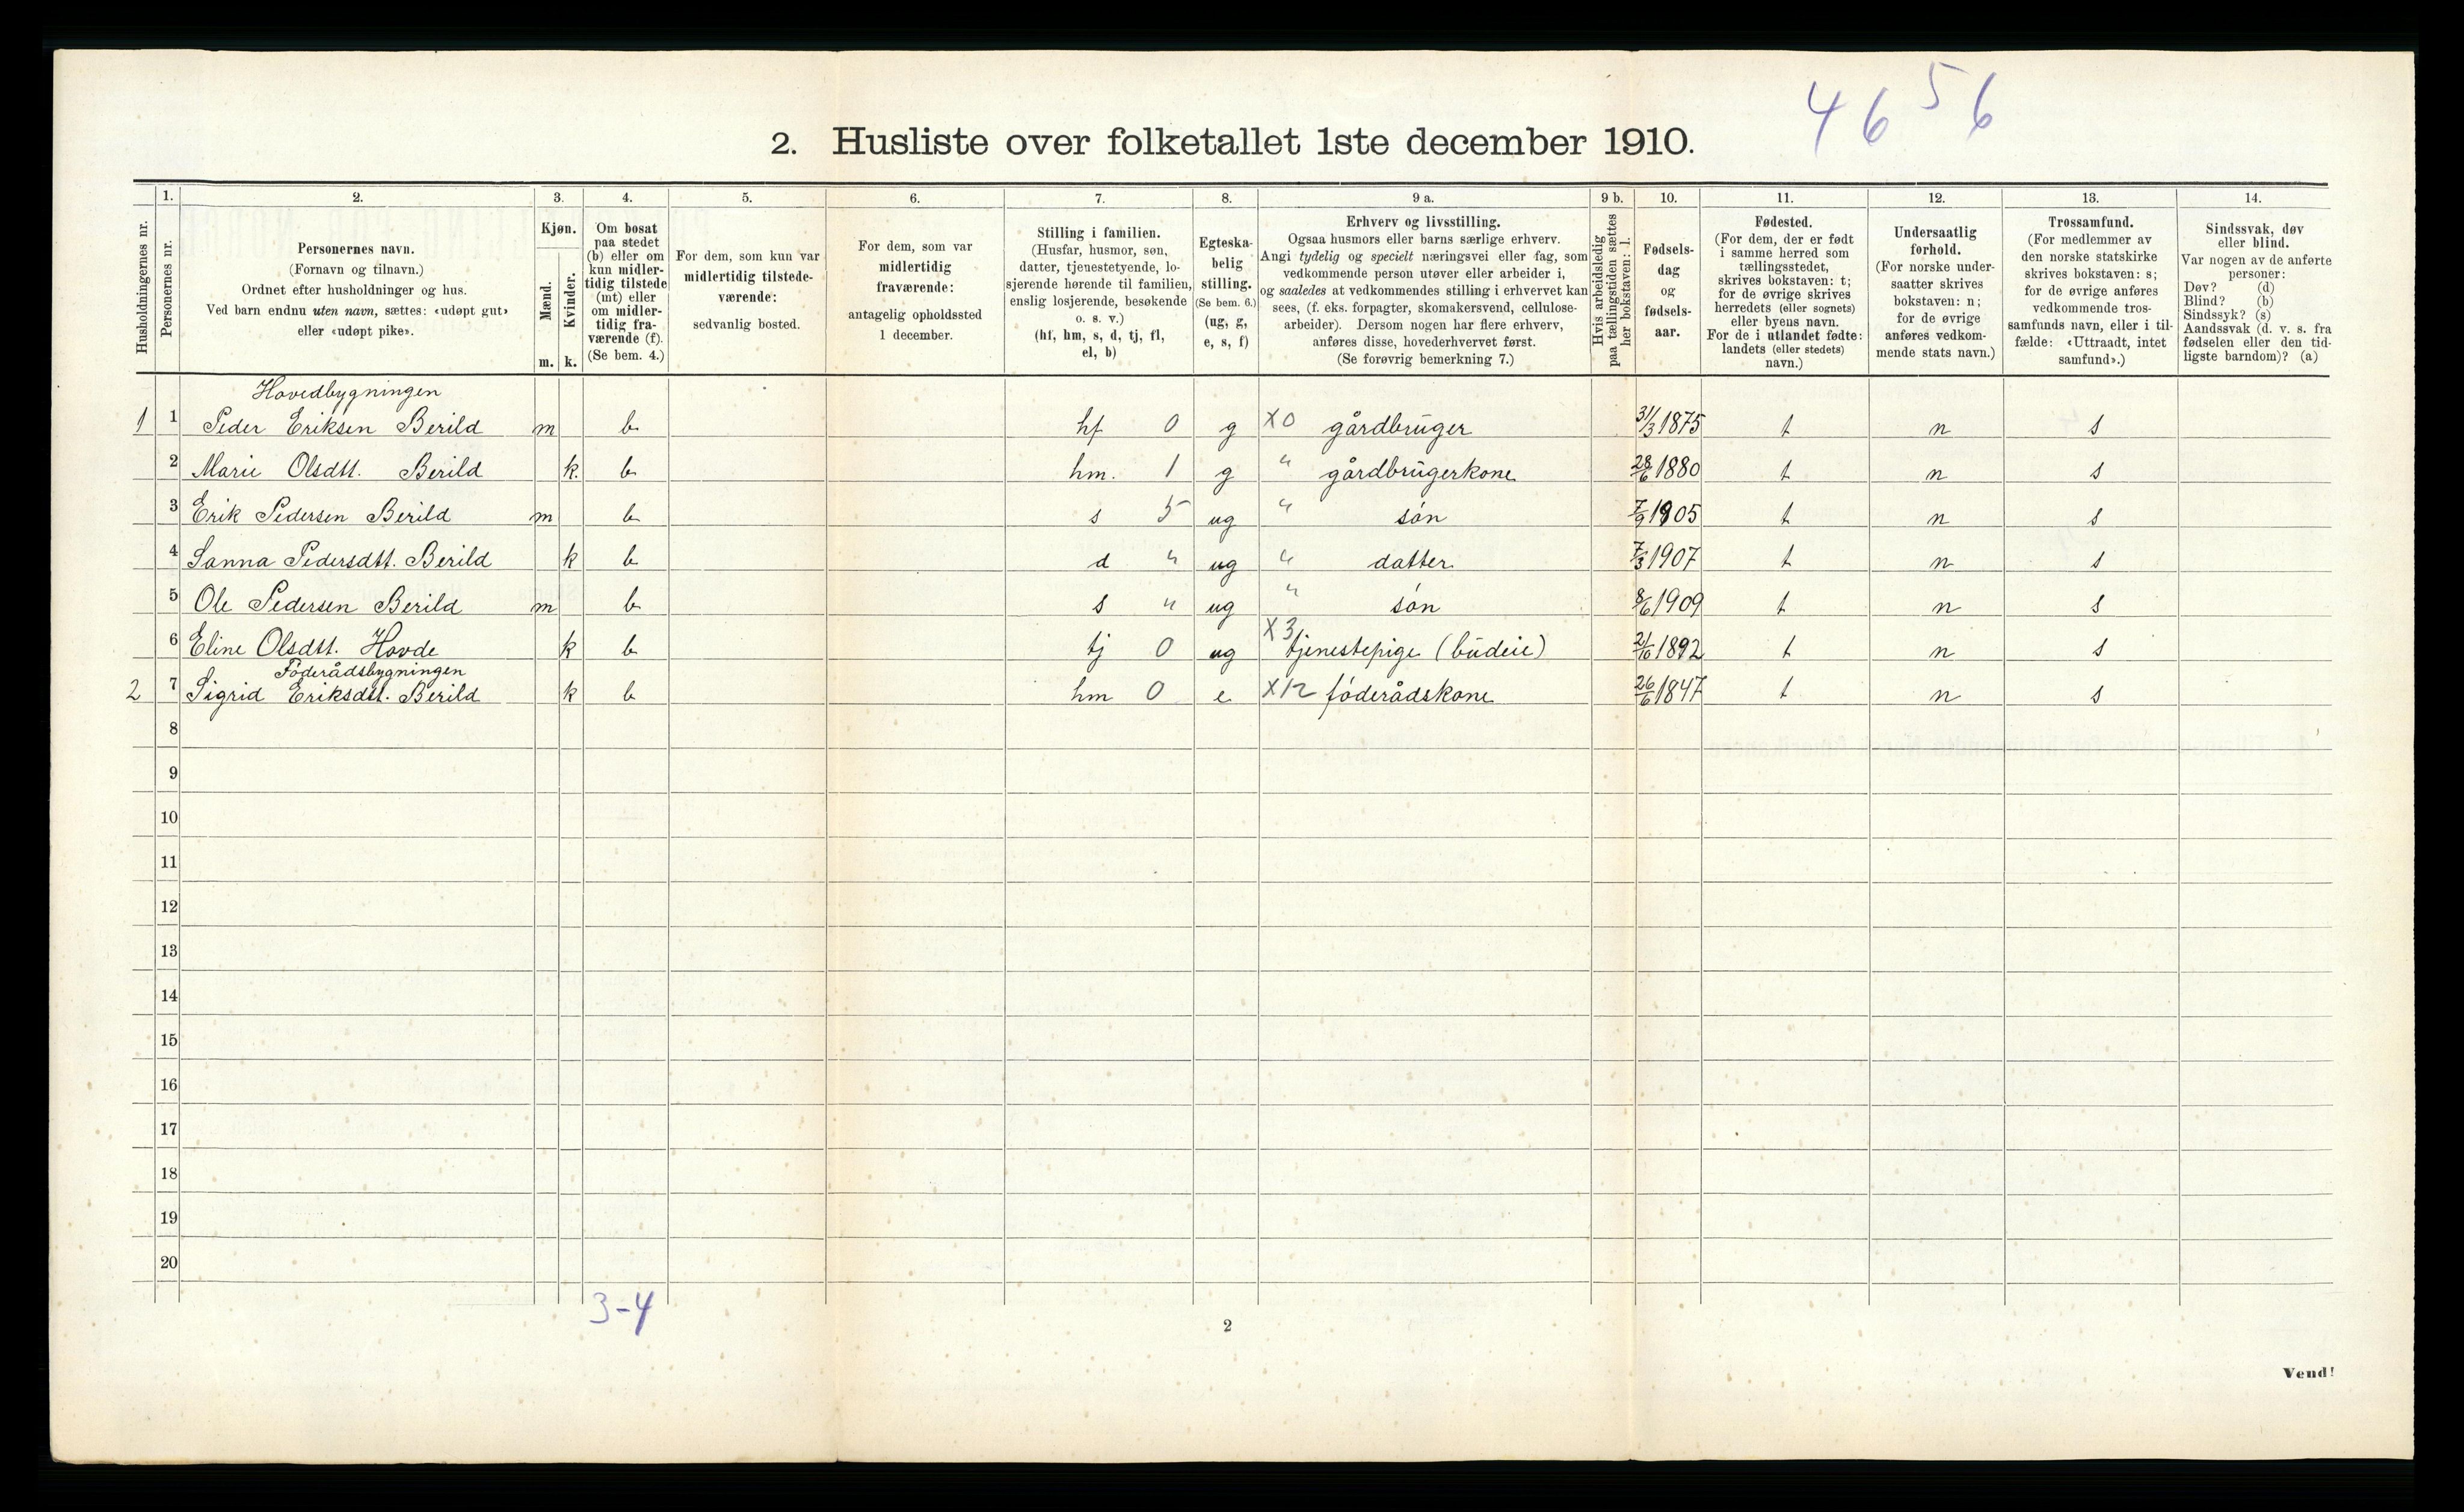 4656
2. Husliste over folketallet 1ste december 1910.
Husholdningernes nr.
1.
Personernes nr.
2.
Personernes navn.
(Fornavn og tilnavn.)
Ordnet efter husholdninger og hus.
Ved barn endnu uten navn, sættes: «udøpt gut»
eller «udøpt pike».
3.
Kjøn.
Mænd.
m.
Kvinder.
k.
4.
Om bosat
paa stedet
(b) eller om
kun midler-
tidig tilstede
(mt) eller
om midler-
tidig fra-
værende (f).
(Se bem. 4.)
5.
For dem, som kun var
midlertidig tilstede-
værende:
sedvanlig bosted.
6.
For dem, som var
midlertidig
fraværende:
antagelig opholdssted
1 december.
7.
Stilling i familien.
(Husfar, husmor, søn,
datter, tjenestetyende, lo-
sjerende hørende til familien,
enslig losjerende, besøkende
o. s. v.)
(hf, hm, s, d, tj, fl,
el, b)
8.
Egteska-
belig
stilling.
(Se bem. 6.)
(ug, g,
e, s, f)
9 a.
Erhverv og livsstilling.
Ogsaa husmors eller barns særlige erhverv.
Angi tydelig og specielt næringsvei eller fag, som
vedkommende person utøver eller arbeider i,
og saaledes at vedkommendes stilling i erhvervet kan
sees, (f. eks. forpagter, skomakersvend, cellulose-
arbeider). Dersom nogen har flere erhverv,
anføres disse, hovederhvervet først.
(Se forøvrig bemerkning 7.)
9 b.
Hvis arbeidsledig
paa tællingstiden sættes
her bokstaven: l.
10.
Fødsels-
dag
og
fødsels-
aar.
11.
Fødested.
(For dem, der er født
i samme herred som
tællingsstedet,
skrives bokstaven: t;
for de øvrige skrives
herredets (eller sognets)
eller byens navn.
For de i utlandet fødte:
landets (eller stedets)
navn.)
12.
Undersaatlig
forhold.
(For norske under-
saatter skrives
bokstaven: n;
for de øvrige
anføres vedkom-
mende stats navn.)
13.
Trossamfund.
(For medlemmer av
den norske statskirke
skrives bokstaven: s;
for de øvrige anføres
vedkommende tros-
samfunds navn, eller i til-
fælde: «Uttraadt, intet
samfund».)
14.
Sindssvak, døv
eller blind.
Var nogen av de anførte
personer:
Døv? (d)
Blind? (b)
Sindssyk? (s)
Aandssvak (d. v. s. fra
fødselen eller den tid-
ligste barndom)? (a)
Hovedbygningen
1 1 Peder Eriksen Berild m b hf 0 g X0 gårdbruger 31/3 1875 t n s
2 Marie Olsdtt. Berild k. b hm. 1 g " gårdbrugerkone 28/6 1880 t n s
3 Erik Pedersen Berild m b s 5 ug " søn 7/9 1905 t n s
4 Sanna Pedersdtt. Berild k b d " ug " datter 7/3 1907 t n s
5 Ole Pedersen Berild m b s " ug " søn 8/6 1909 t n s
6 Eline Olsdtt. Hovde k b tj 0 ug X3 tjenestepige (budeie) 21/10 1892 t n s
Föderådsbygningen
2 7 Sigrid Eriksdtt. Berild k b hm 0 e X12 föderådskone 26/6 1847 t n s
8
9
10
11
12
13
14
15
16
17
18
19
20
3-4
2
Vend!